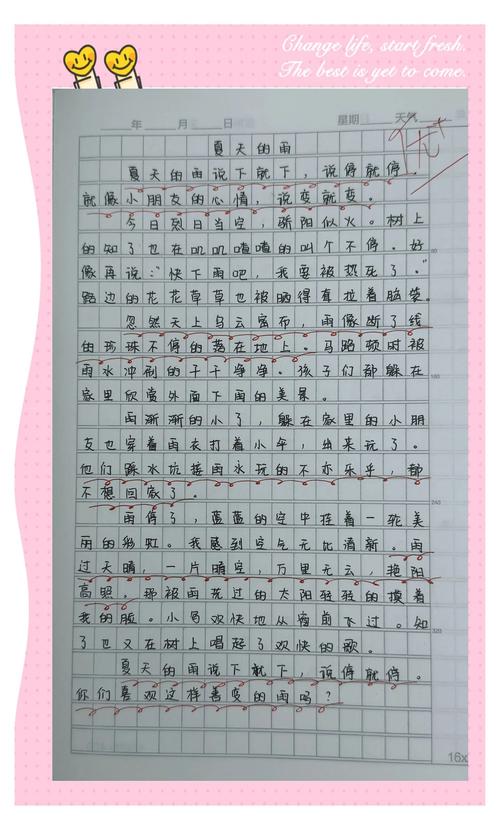 Change life, start fresh.
The best is yet to come.
年 月 日 星期 天气
优+
夏天的雨
夏天的雨说下就下，说停就停，
就像小朋友的心情，说变就变。
今日烈日当空，骄阳似火。树上
的知了也在叽叽喳喳的叫个不停。好
像再说："快下雨吧，我要被热死了。"
路边的花花草草也被晒得耷拉着脑袋。
忽然天上乌云密布，雨像断了线
的珍珠不停的落在地上。马路顿时被
雨水冲倒的干干净净。孩子们都躲在
家里欣赏外面下雨的美景。
雨渐渐的小了，躲在家里的小朋
友也穿着雨衣打着小伞，出来玩了。
他们踩水坑接雨水玩的不亦乐乎，都
不想回家了。
雨停了，蓝蓝的空中挂着一轮美
丽的彩虹。我感到空气无比清新。雨
过天晴，一片晴空，万里无云，艳阳
高照。那被雨洗过的太阳轻轻的摸着
我的脸。小鸟欢快地从窗前飞过。知
了也又在树上唱起了欢快的歌。
夏天的雨说下就下，说停就停。
你们喜欢这样善变的雨吗？
80
160
240
320
16x